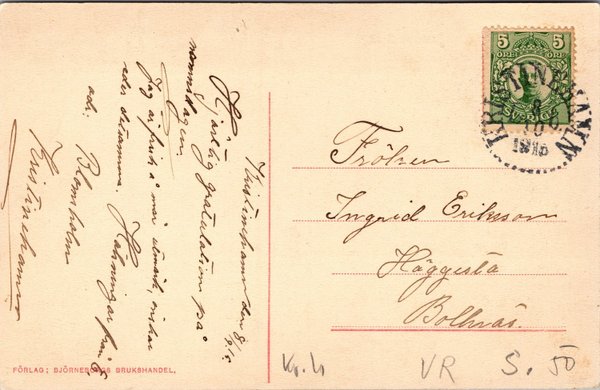 Kristinehamn den 8/
Hjärtlig gratulation på
namnsdagen.
Jag är frisk o mår utmärkt, önskar
eder detsamma. Hälsningar från
adr. Blomholm
Kristinehamn
5 5
ÖRE ÖRE
SVERIGE
KRISTINEHAMN
8
10
1915
Fröken
Ingrid Eriksson
Häggesta
Bollnäs.
FÖRLAG; BJÖRNEBORGS BRUKSHANDEL.
Kr. 4
VR
S. 50